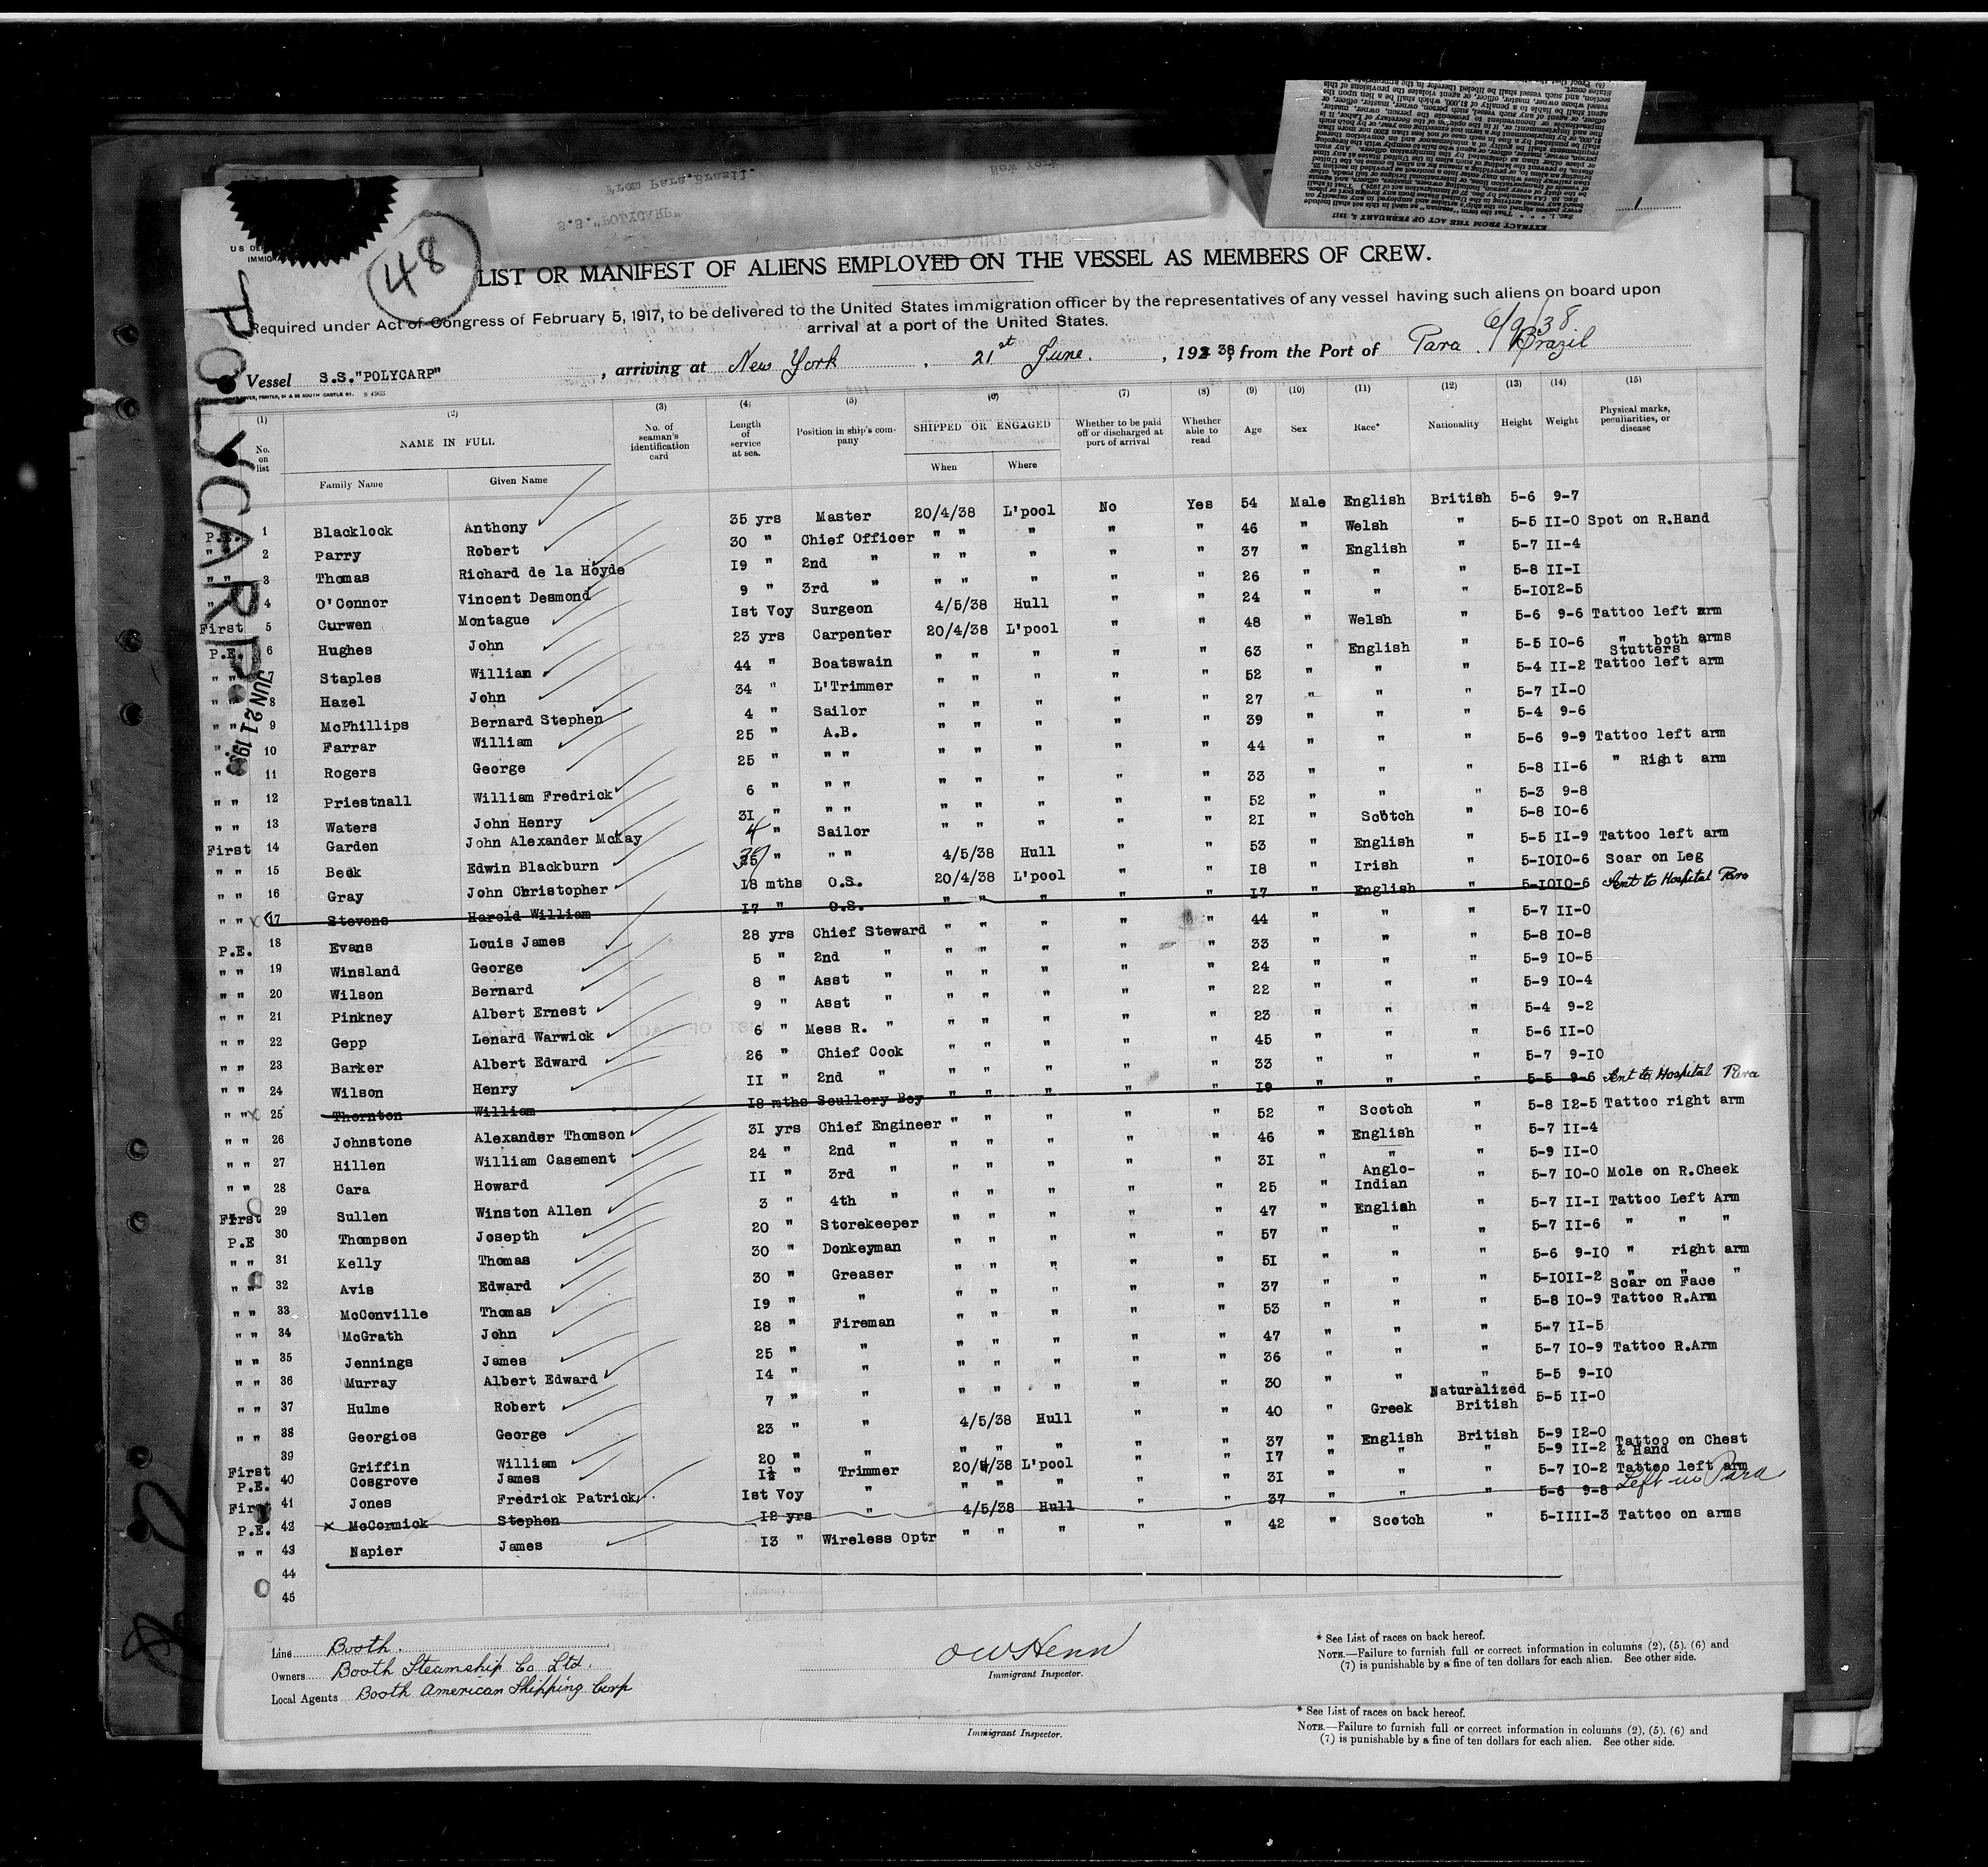 EXTRACT FROM THE ACT OF FEBRUARY 5, 1917
From Para, Brazil. New York
S.S. "POLYCARP"
48
POLYCARP
JUN 21 1938
LIST OR MANIFEST OF ALIENS EMPLOYED ON THE VESSEL AS MEMBERS OF CREW.
Required under Act of Congress of February 5, 1917, to be delivered to the United States immigration officer by the representatives of any vessel having such aliens on board upon
arrival at a port of the United States.
6/9/38
Vessel S.S."POLYCARP", arriving at New York, 21st June, 1938, from the Port of Para. Brazil
(1) (2) (3) (4) (5) (6) (7) (8) (9) (10) (11) (12) (13) (14) (15)
No. on list NAME IN FULL No. of seaman's identification card Length of service at sea. Position in ship's company SHIPPED OR ENGAGED Whether to be paid off or discharged at port of arrival Whether able to read Age Sex Race* Nationality Height Weight Physical marks, peculiarities, or disease
Family Name Given Name When Where
P.E. 1 Blacklock Anthony 35 yrs Master 20/4/38 L'pool No Yes 54 Male English British 5-6 9-7
" " 2 Parry Robert 30 " Chief Officer " " " " " 46 " Welsh " 5-5 II-0 Spot on R.Hand
" " 3 Thomas Richard de la Hoyde I9 " 2nd " " " " " " 37 " English " 5-7 II-4
" 4 O'Connor Vincent Desmond 9 " 3rd " " " " " " 26 " " " 5-8 II-I
First 5 Curwen Montague Ist Voy Surgeon 4/5/38 Hull " " 24 " " " 5-IO I2-5
P.E. 6 Hughes John 23 yrs Carpenter 20/4/38 L'pool " " 48 " Welsh " 5-6 9-6 Tattoo left arm
" " 7 Staples William 44 " Boatswain " " " " " 63 " English " 5-5 IO-6 " both arms Stutters
" " 8 Hazel John 34 " L'Trimmer " " " " " 52 " " " 5-4 II-2 Tattoo left arm
" " 9 McPhillips Bernard Stephen 4 " Sailor " " " " " 27 " " " 5-7 II-0
" 10 Farrar William 25 " A.B. " " " " " 39 " " " 5-4 9-6
" 11 Rogers George 25 " " " " " " " " 44 " " " 5-6 9-9 Tattoo left arm
" " 12 Priestnall William Fredrick 6 " " " " " " " " 33 " " " 5-8 II-6 " Right arm
" " 13 Waters John Henry 3I " " " " " " " " 52 " " " 5-3 9-8
First 14 Garden John Alexander McKay 4 " Sailor " " " " " 2I " Scotch " 5-8 IO-6
" " 15 Beek Edwin Blackburn 35 " " " 4/5/38 Hull " " 53 " English " 5-5 II-9 Tattoo left arm
" " 16 Gray John Christopher I8 mths O.S. 20/4/38 L'pool " " I8 " Irish " 5-IO IO-6 Scar on Leg
" " x 17 Stevens Harold William I7 " O.S. " " " " " I7 " English " 5-IO IO-6 Sent to Hospital Para
P.E. 18 Evans Louis James 28 yrs Chief Steward " " " " " 44 " " " 5-7 II-0
" " 19 Winsland George 5 " 2nd " " " " " " 33 " " " 5-8 IO-8
" " 20 Wilson Bernard 8 " Asst " " " " " " 24 " " " 5-9 IO-5
" " 21 Pinkney Albert Ernest 9 " Asst " " " " " " 22 " " " 5-9 IO-4
" " 22 Gepp Lenard Warwick 6 " Mess R. " " " " " " 23 " " " 5-4 9-2
" " 23 Barker Albert Edward 26 " Chief Cook " " " " " 45 " " " 5-6 II-0
" " 24 Wilson Henry II " 2nd " " " " " " 33 " " " 5-7 9-IO
" " x 25 Thornton William I8 mths Scullery Boy " " " " " I9 " " " 5-5 9-6 Sent to Hospital Para
" " 26 Johnstone Alexander Thomson 3I yrs Chief Engineer " " " " " 52 " Scotch " 5-8 I2-5 Tattoo right arm
" " 27 Hillen William Casement 24 " 2nd " " " " " " 46 " English " 5-7 II-4
" " 28 Cara Howard II " 3rd " " " " " " 3I " " " 5-9 II-0
First 29 Sullen Winston Allen 3 " 4th " " " " " " 25 " Anglo-Indian " 5-7 IO-0 Mole on R.Cheek
P.E 30 Thompson Joseph 20 " Storekeeper " " " " " 47 " English " 5-7 II-I Tattoo Left Arm
" " 31 Kelly Thomas 30 " Donkeyman " " " " " 57 " " " 5-7 II-6 " " "
" " 32 Avis Edward 30 " Greaser " " " " " 5I " " " 5-6 9-IO " right arm
" " 33 McConville Thomas I9 " " " " " " " 37 " " " 5-IO II-2 " " " Scar on Face
" " 34 McGrath John 28 " Fireman " " " " " 53 " " " 5-8 IO-9 Tattoo R.Arm
" " 35 Jennings James 25 " " " " " " " 47 " " " 5-7 II-5
" " 36 Murray Albert Edward I4 " " " " " " " 36 " " " 5-7 IO-9 Tattoo R.Arm
" " 37 Hulme Robert 7 " " " " " " " 30 " " " 5-5 9-IO
" " 38 Georgios George 23 " " 4/5/38 Hull " " 40 " Greek Naturalized British 5-5 II-0
First 39 Griffin William 20 " " " " " " " 37 " English British 5-9 I2-0 Tattoo on Chest & Hand
P.E. 40 Cosgrove James I½ " Trimmer 20/4/38 L'pool " " I7 " " " 5-9 II-2
First 41 Jones Fredrick Patrick Ist Voy " " " " " " 3I " " " 5-7 IO-2 Tattoo left arm
P.E. 42 x McCormick Stephen I2 yrs " 4/5/38 Hull " " 37 " " " 5-6 9-8 Left in Para
" " 43 Napier James I3 " Wireless Optr " " " " " 42 " Scotch " 5-II II-3 Tattoo on arms
44
45
Line Booth.
Owners Booth Steamship Co Ltd.
Local Agents Booth American Shipping Corp
O W Henn
Immigrant Inspector.
* See List of races on back hereof.
NOTE.—Failure to furnish full or correct information in columns (2), (5), (6) and
(7) is punishable by a fine of ten dollars for each alien. See other side.
Immigrant Inspector.
* See List of races on back hereof.
NOTE.—Failure to furnish full or correct information in columns (2), (5), (6) and
(7) is punishable by a fine of ten dollars for each alien. See other side.